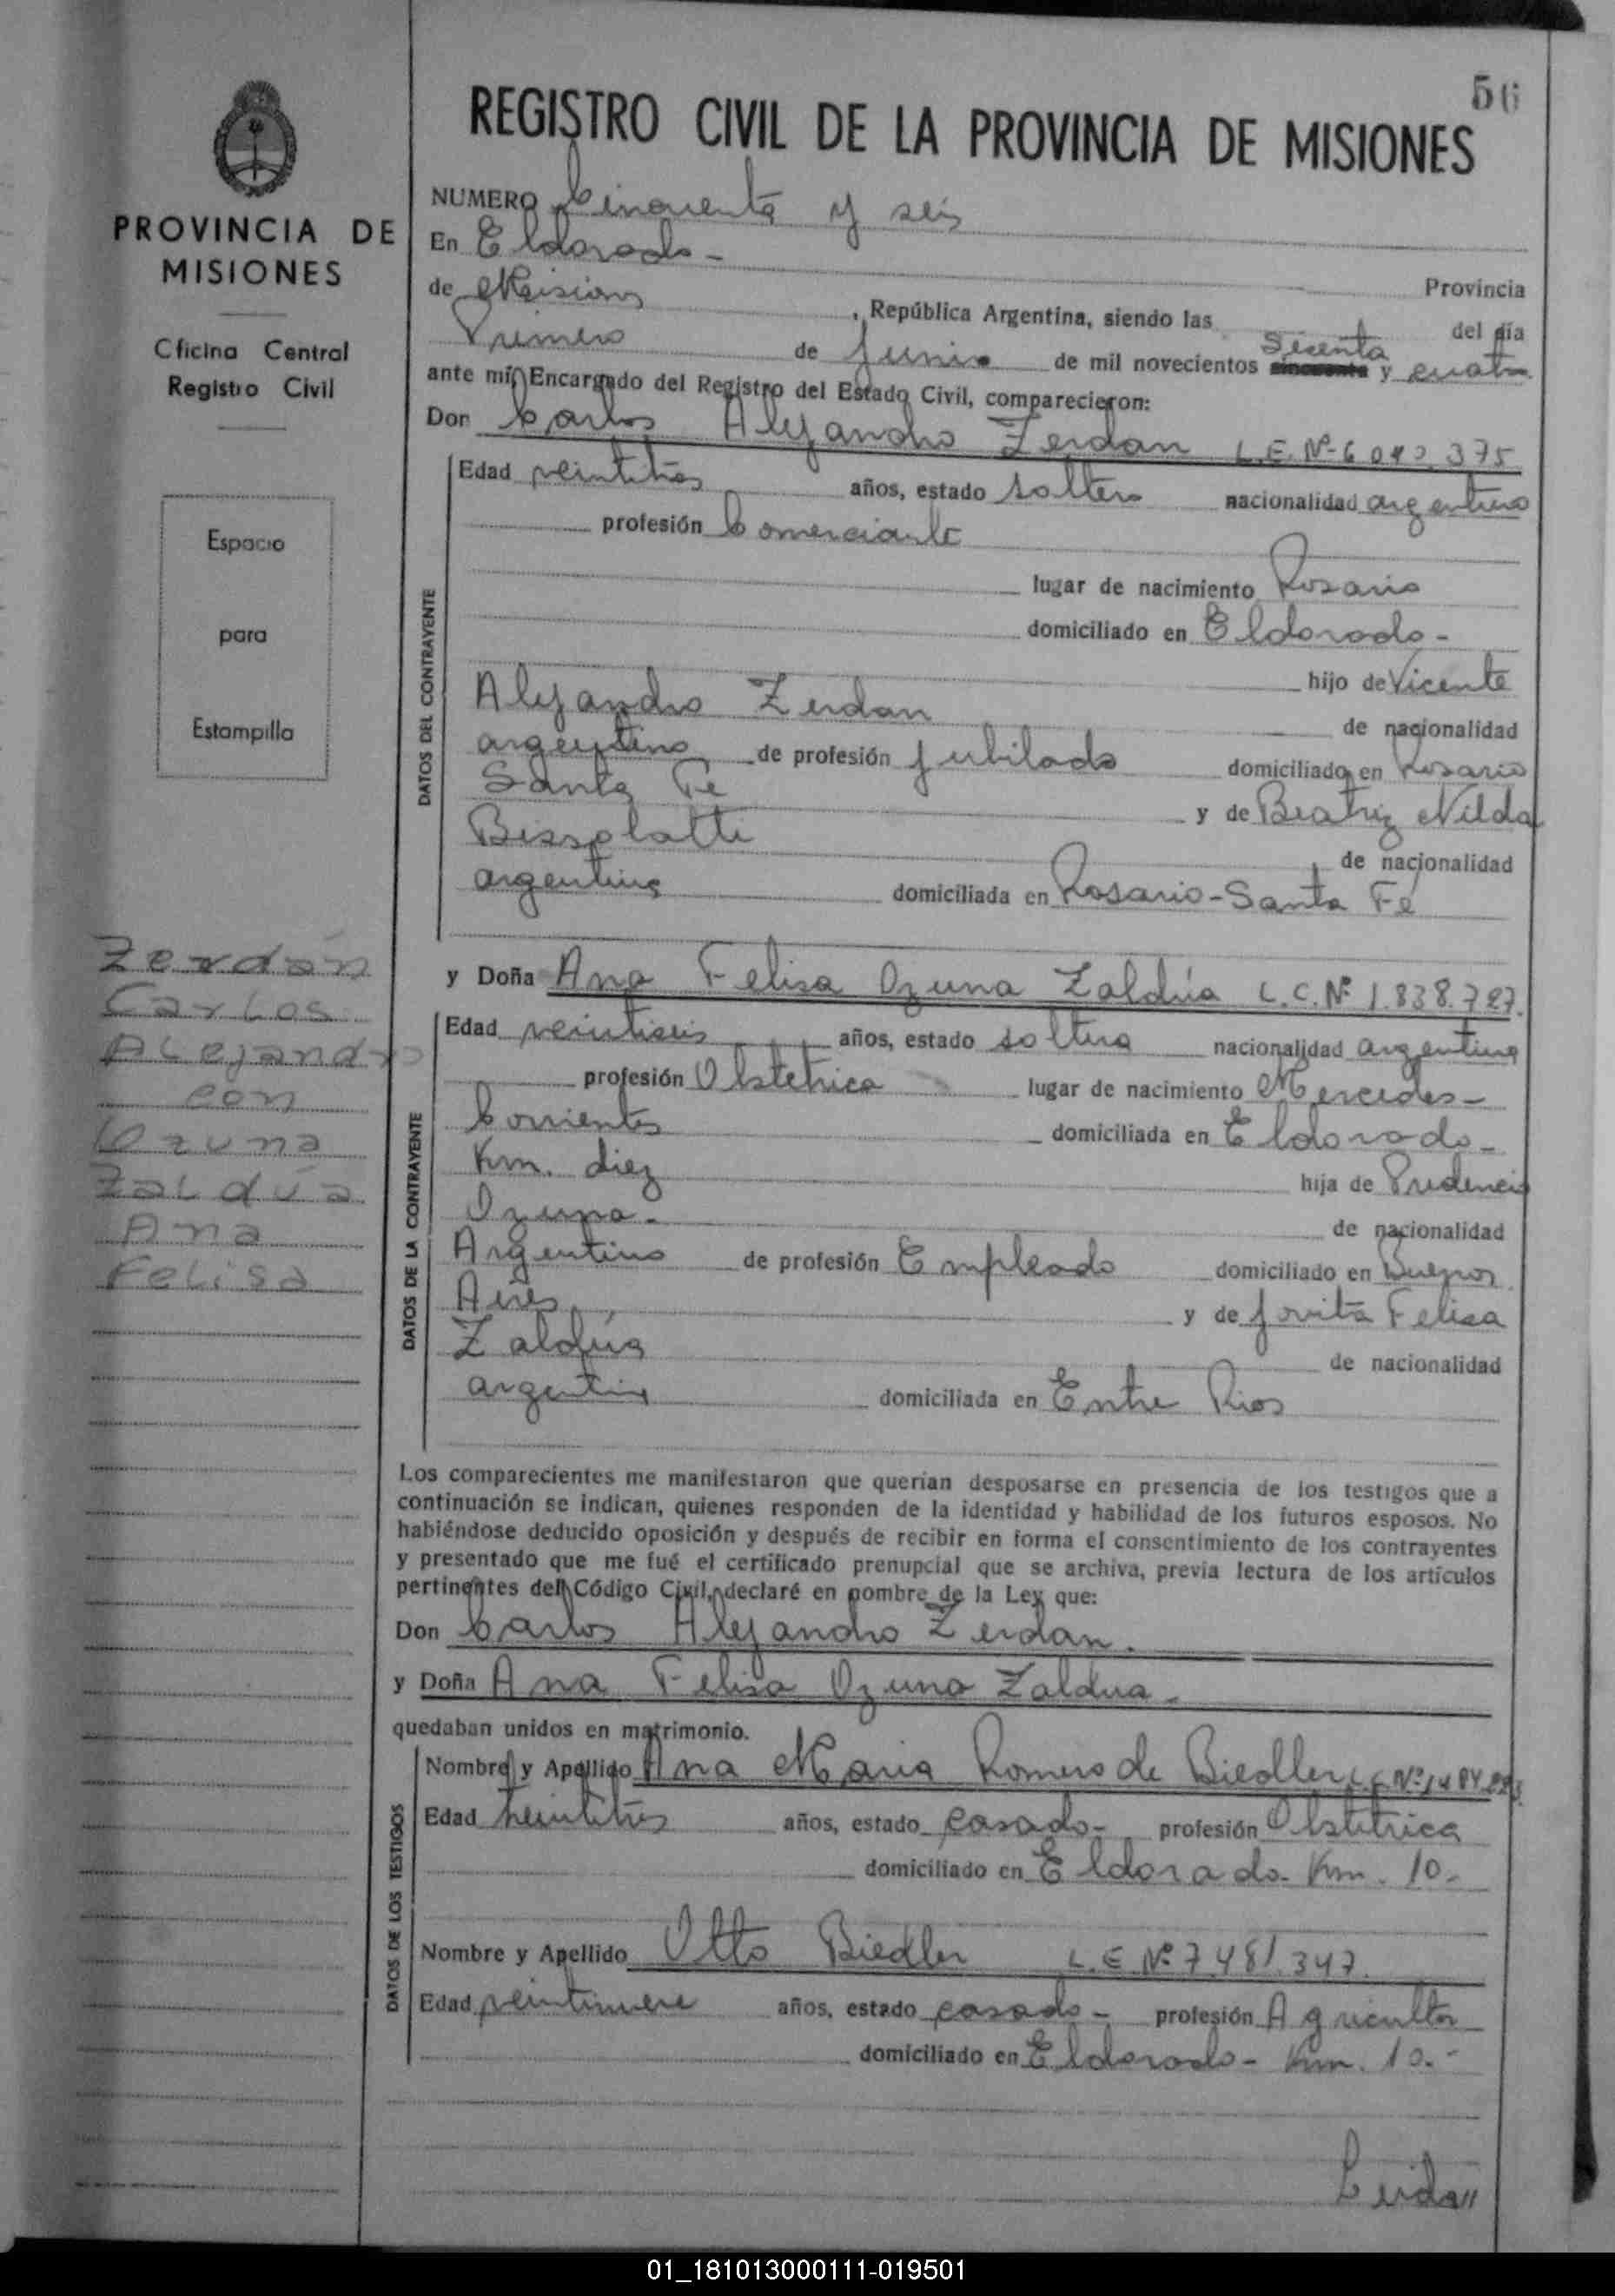 56
REGISTRO CIVIL DE LA PROVINCIA DE MISIONES
PROVINCIA DE
MISIONES
Oficina Central
Registro Civil
Espacio
para
Estampilla
Zerdán
Carlos
Alejandro
con
Ozuna
Zaldúa
Ana
Felisa
NUMERO Cincuenta y seis
En Eldorado-
Provincia
de Misiones, República Argentina, siendo las del día
Primero de Junio de mil novecientos Sesenta cincuenta y cuatro
ante mí, Encargado del Registro del Estado Civil, comparecieron:
Don Carlos Alejandro Zerdan L.E. Nº 6 042 375
DATOS DEL CONTRAYENTE
Edad veintitrés años, estado soltero nacionalidad argentino
profesión Comerciante
lugar de nacimiento Rosario
domiciliado en Eldorado-
hijo de Vicente
Alejandro Zerdan de nacionalidad
argentino de profesión jubilado domiciliado en Rosario
Santa Fe y de Beatriz Nilda
Bissolatti de nacionalidad
argentina domiciliada en Rosario-Santa Fé
y Doña Ana Felisa Ozuna Zaldúa L.C. Nº 1.838.727.
DATOS DE LA CONTRAYENTE
Edad veintiseis años, estado soltera nacionalidad argentina
profesión Obstetrica lugar de nacimiento Mercedes-
Corrientes domiciliada en Eldorado-
Km. diez hija de Prudencio
Ozuna- de nacionalidad
Argentino de profesión Empleado domiciliado en Buenos
Aires y de Jovita Felisa
Zaldúa de nacionalidad
argentina domiciliada en Entre Rios
Los comparecientes me manifestaron que querían desposarse en presencia de los testigos que a
continuación se indican, quienes responden de la identidad y habilidad de los futuros esposos. No
habiéndose deducido oposición y después de recibir en forma el consentimiento de los contrayentes
y presentado que me fué el certificado prenupcial que se archiva, previa lectura de los artículos
pertinentes del Código Civil, declaré en nombre de la Ley que:
Don Carlos Alejandro Zerdan.
y Doña Ana Felisa Ozuna Zaldua-
quedaban unidos en matrimonio.
DATOS DE LOS TESTIGOS
Nombre y Apellido Ana Maria Romero de Biedler L.C. Nº
Edad veintitrés años, estado casado- profesión Obstetrica
domiciliado en Eldorado- Km. 10-
Nombre y Apellido Otto Biedler L.E. Nº 7 481.347
Edad veintinueve años, estado casado- profesión Agricultor
domiciliado en Eldorado- Km. 10.-
Zerdan
01_181013000111-019501